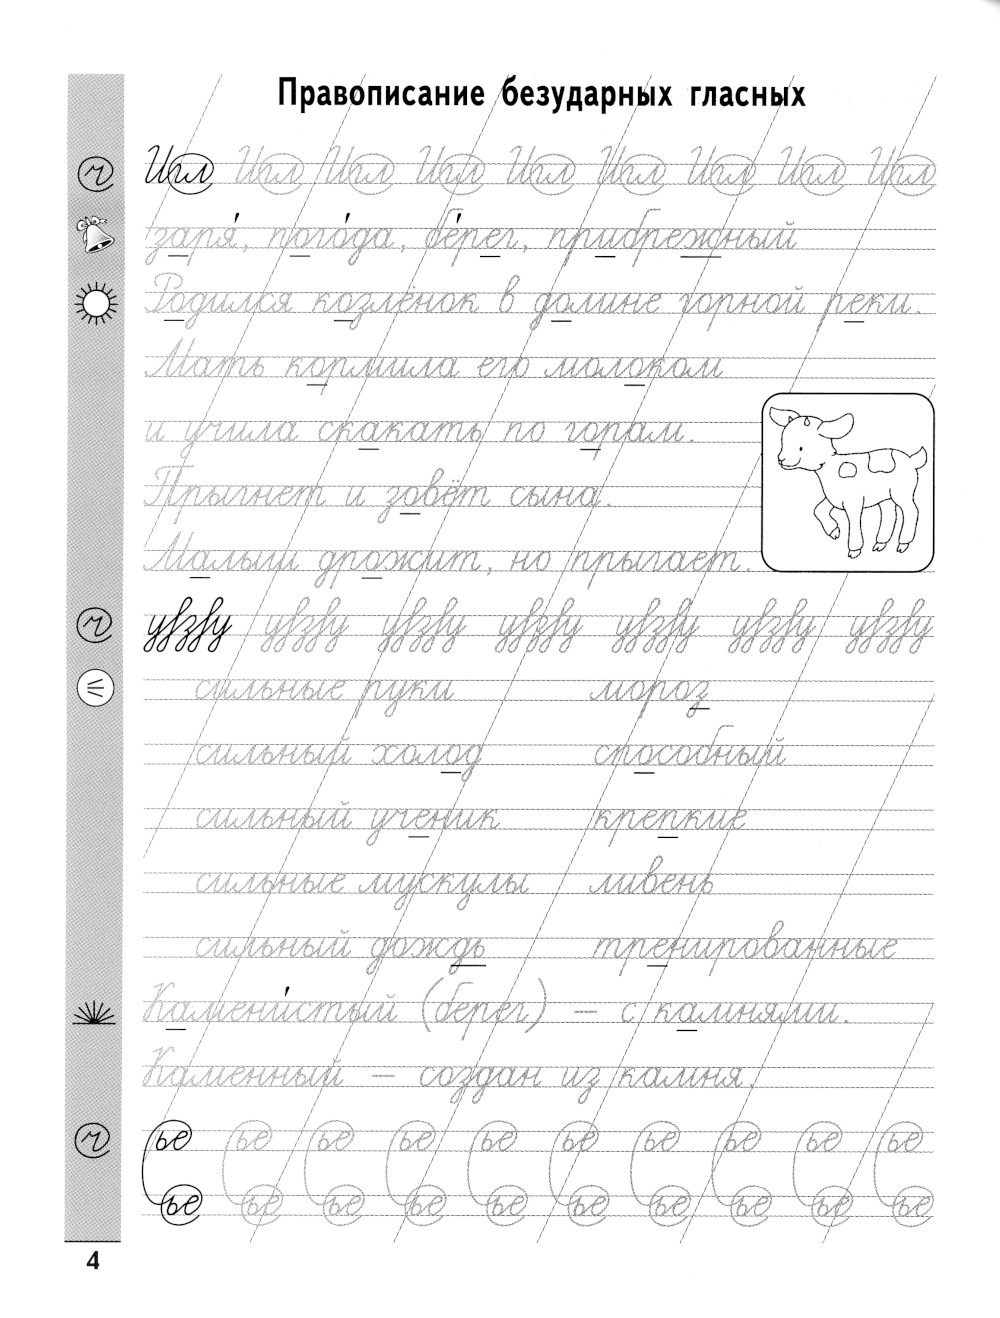 Правописание безударных гласных
Игл Игл Игл Игл Игл Игл Игл Игл Игл
заря́, пого́да, бе́рег, прибрежный
Родился козлёнок в долине горной реки.
Мать кормила его молоком
и учила скакать по горам.
Прыгнет и зовёт сына.
Малыш дрожит, но прыгает.
сильные руки мороз
сильный холод способный
сильный ученик крепкие
сильные мускулы ливень
сильный дождь тренированные
Камени́стый (берег) — с камнями.
Каменный — создан из камня.
ье ье ье ье ье ье ье ье ье ье
ье ье ье ье ье ье ье ье ье ье
4